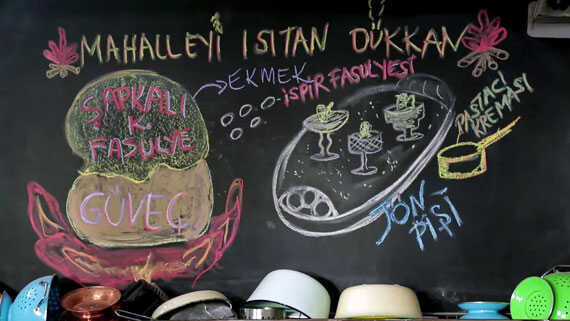 MAHALLEYİ ISITAN DÜKKAN
ŞAPKALI
K.
FASULYE
GÜVEÇ
EKMEK
İSPİR FASULYESİ
PASTACI
KREMASI
JÖN
PİŞİ